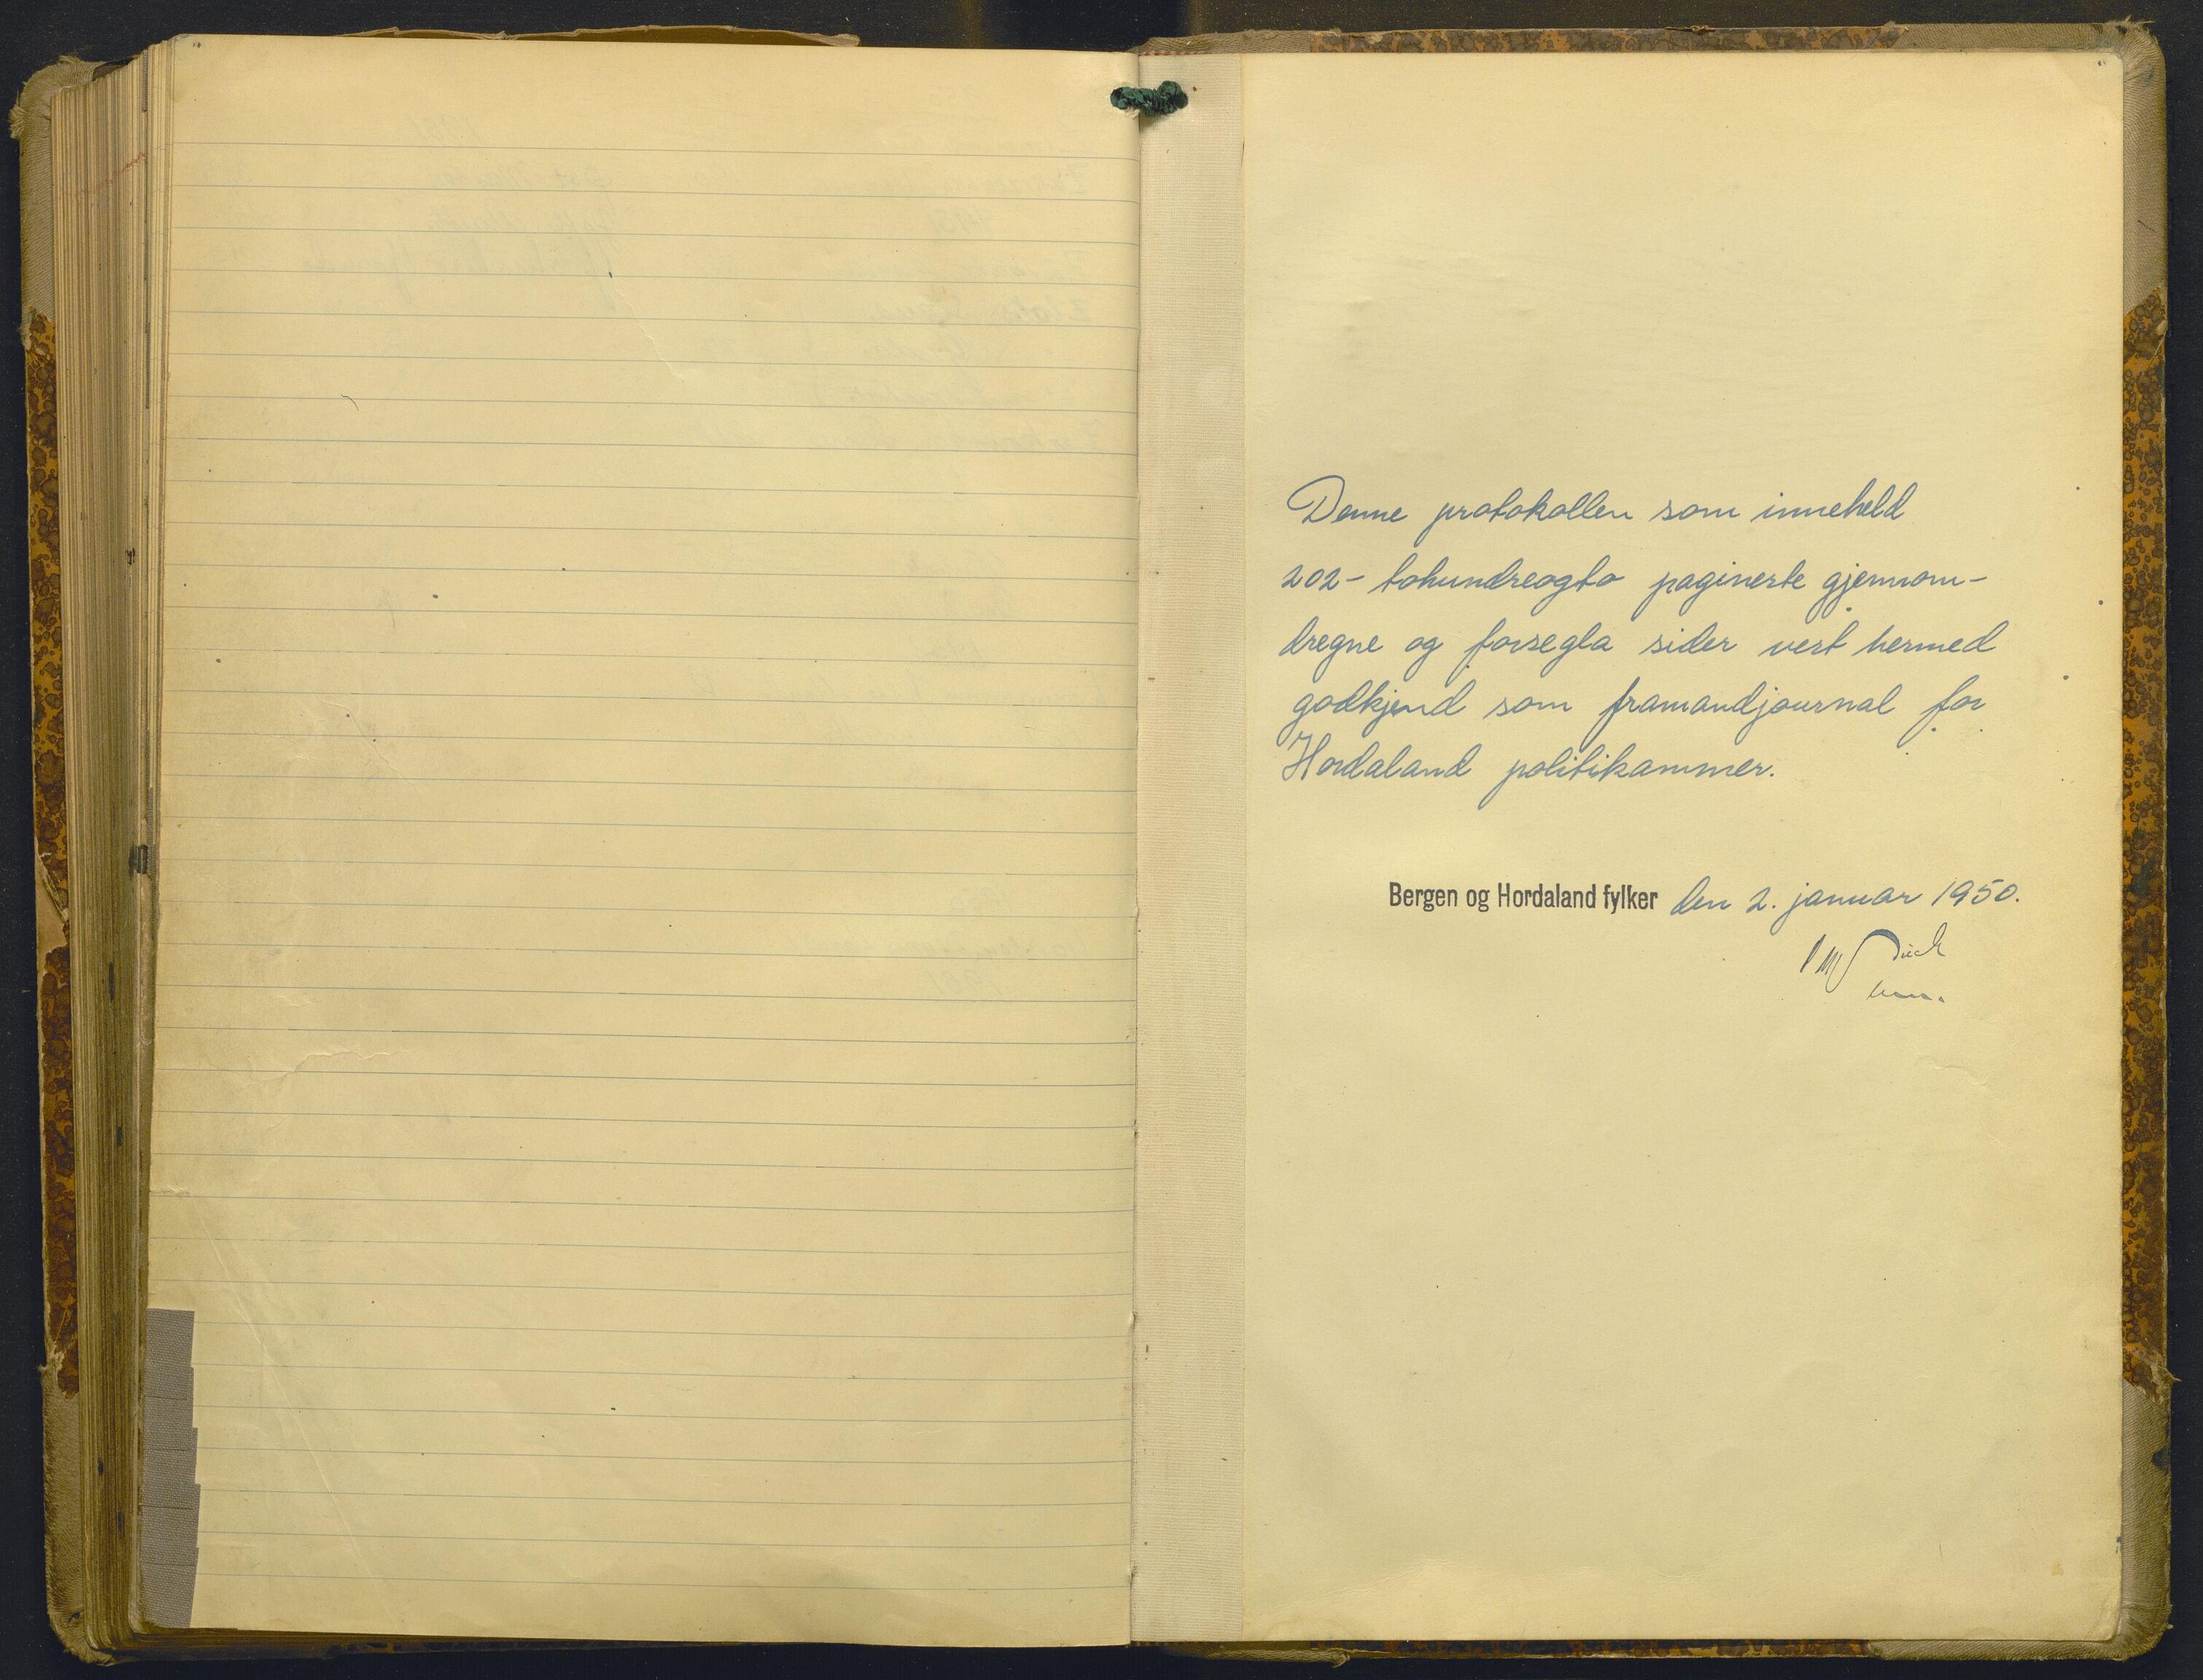 Denne protokollen som inneheld
202- tohundreogto paginerte gjennom-
dregne og forsegla sider vert hermed
godkjend som framandjournal for
Hordaland politikammer.
Bergen og Hordaland fylker den 2. januar 1950.